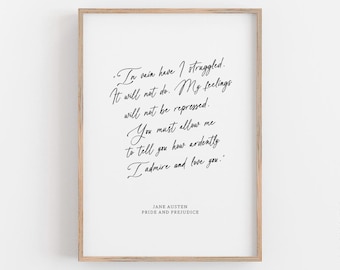 "In vain have I struggled.
It will not do. My feelings
will not be repressed.
You must allow me
to tell you how ardently
I admire and love you."
JANE AUSTEN
PRIDE AND PREJUDICE